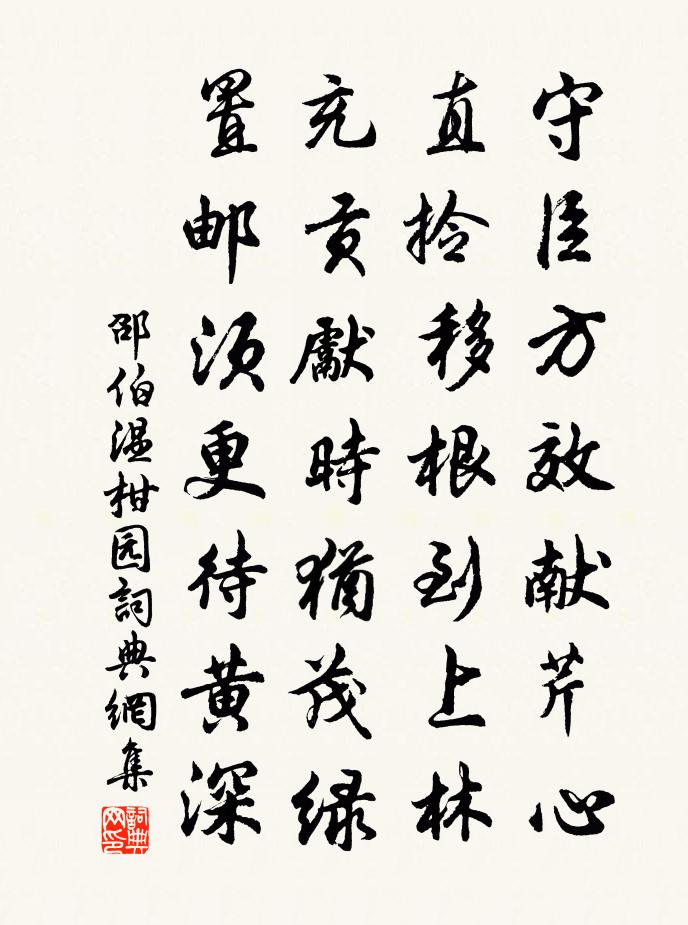 守臣方效献芹心
直拾移根到上林
充贡獻時犹茂绿
置邮须更待黄深
邵伯温柑园詞典網集
詞典网印